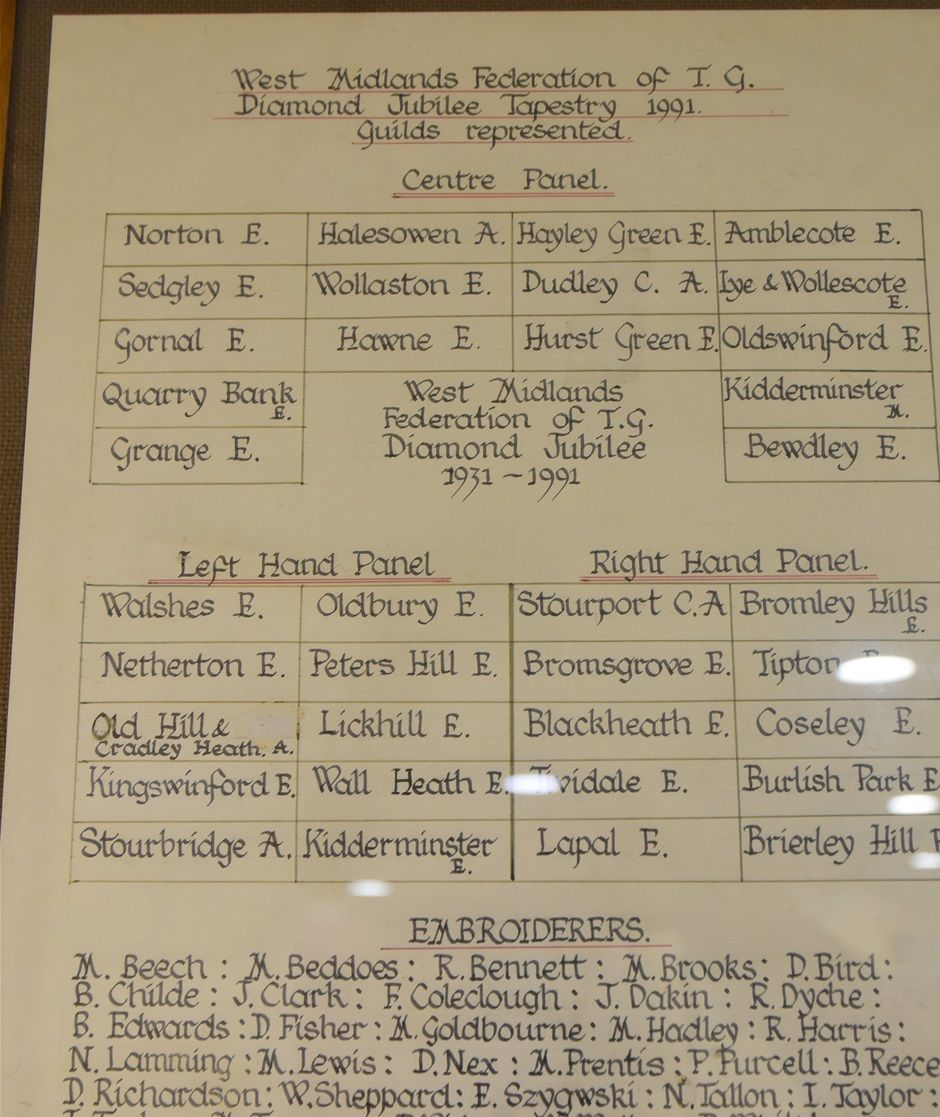 West Midlands Federation of T. G.
Diamond Jubilee Tapestry 1991.
Guilds represented.
Centre Panel.
Norton E. Halesowen A. Hayley Green E. Amblecote E.
Sedgley E. Wollaston E. Dudley C. A. Lye & Wollescote E.
Gornal E. Hawne E. Hurst Green E. Oldswinford E.
Quarry Bank E.
Grange E.
West Midlands
Federation of T.G.
Diamond Jubilee
1931 - 1991
Kidderminster M.
Bewdley E.
Left Hand Panel Right Hand Panel.
Walshes E. Oldbury E. Stourport C.A Bromley Hills E.
Netherton E. Peters Hill E. Bromsgrove E. Tipton
Old Hill & Cradley Heath. A. Lickhill E. Blackheath E. Coseley E.
Kingswinford E. Wall Heath E. Tividale E. Burlish Park E
Stourbridge A. Kidderminster E. Lapal E. Brierley Hill
EMBROIDERERS.
M. Beech : M. Beddoes : R. Bennett : M. Brooks : D. Bird :
B. Childe : J. Clark : F. Coleclough : J. Dakin : R. Dyche :
B. Edwards : D. Fisher : M. Goldbourne : M. Hadley : R. Harris :
N. Lamming : M. Lewis : D. Nex : M. Prentis : P. Purcell : B. Reece
D. Richardson : W. Sheppard : E. Szygwski : N. Tallon : I. Taylor :